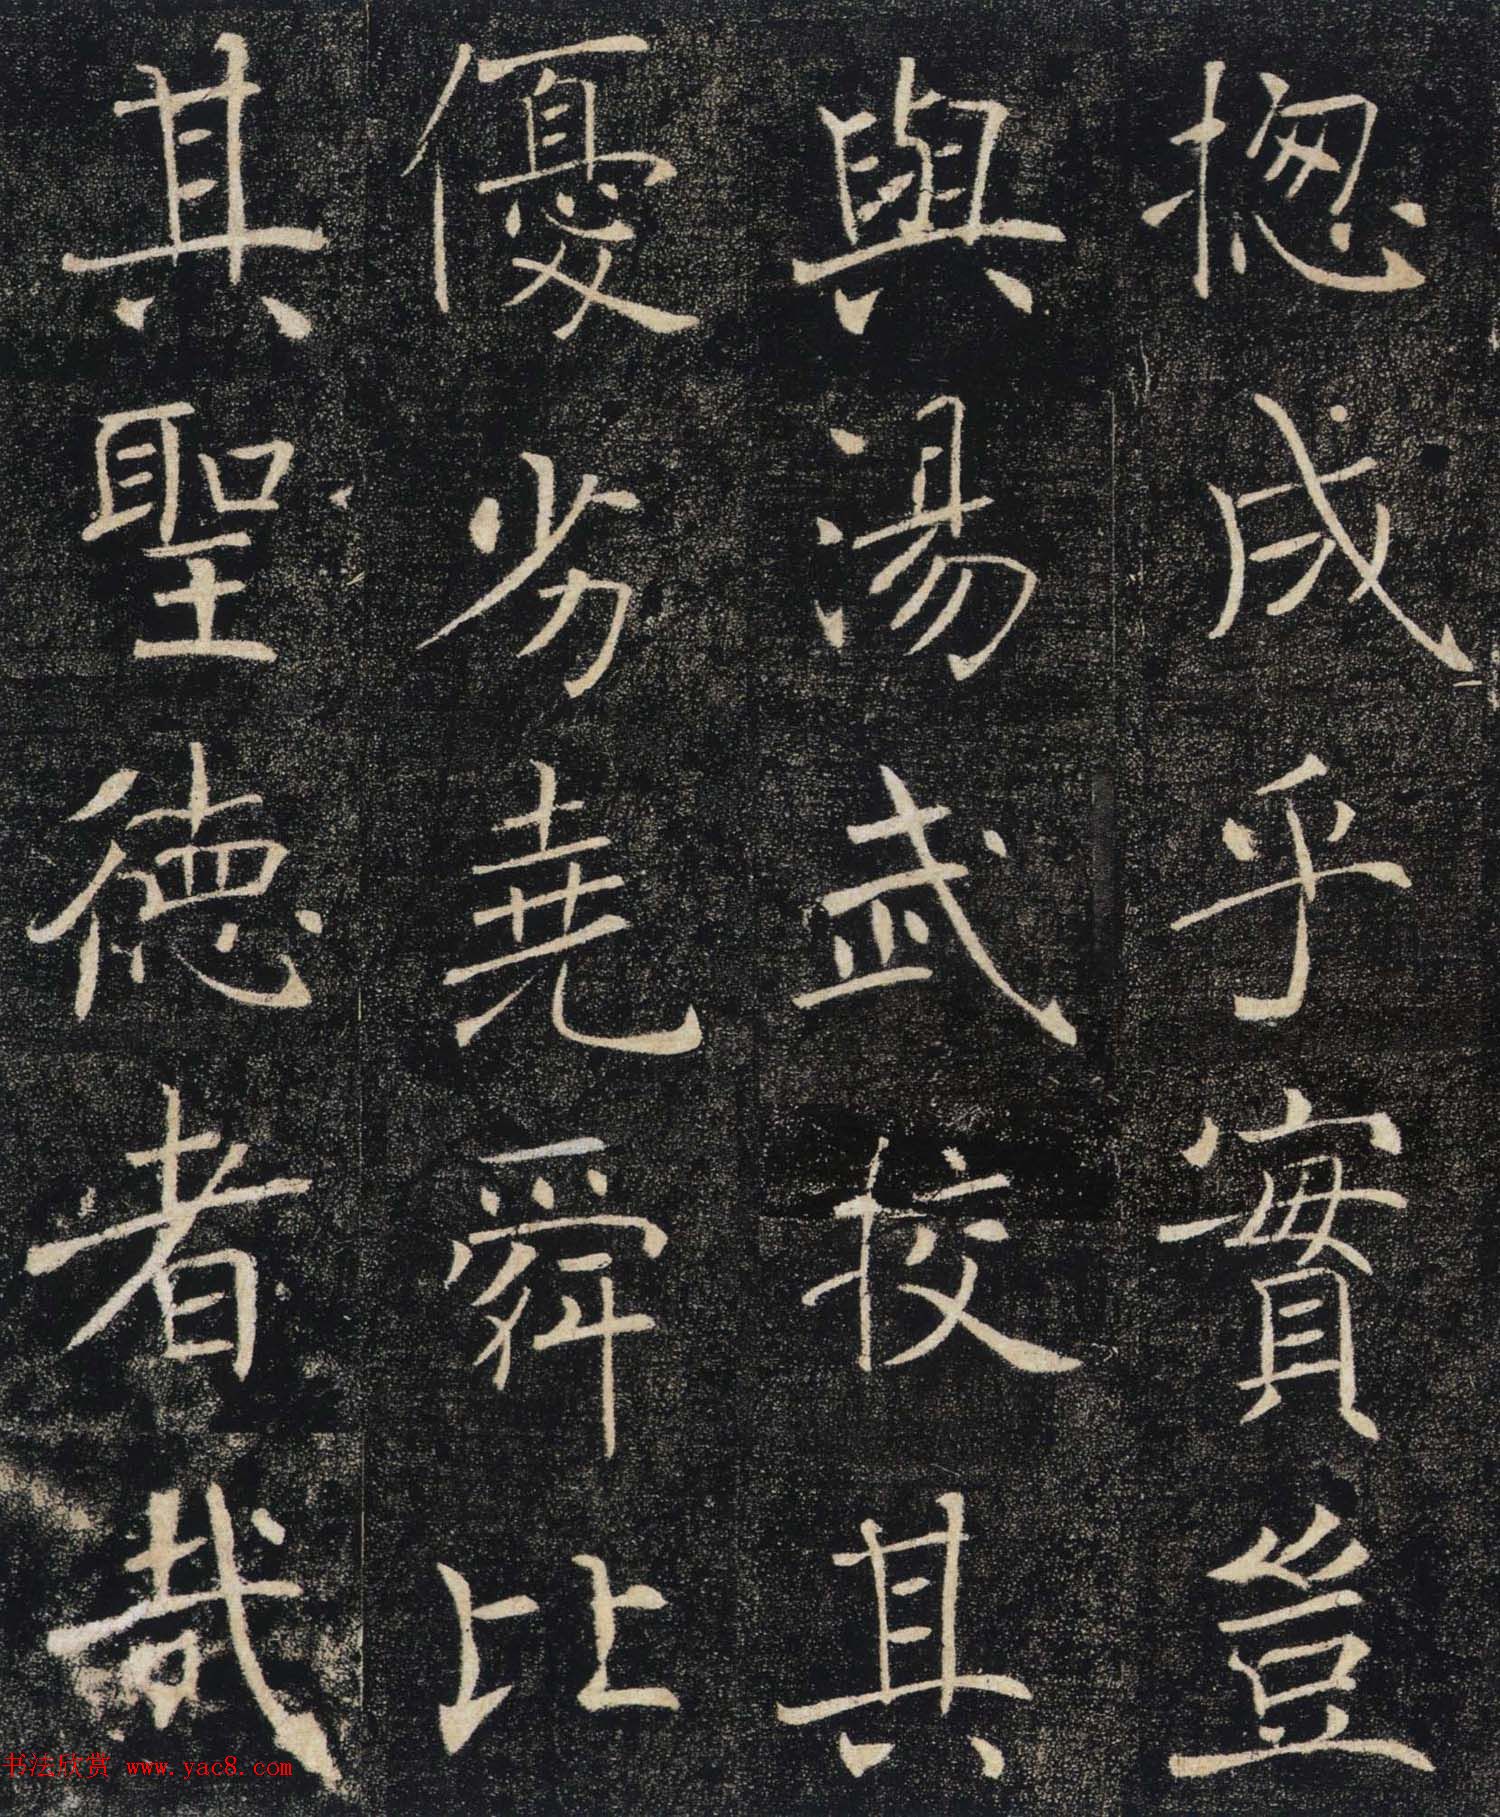 揔成乎實豈
與湯武校其
優劣堯舜比
其聖德者哉
书法欣赏 www.yac8.com